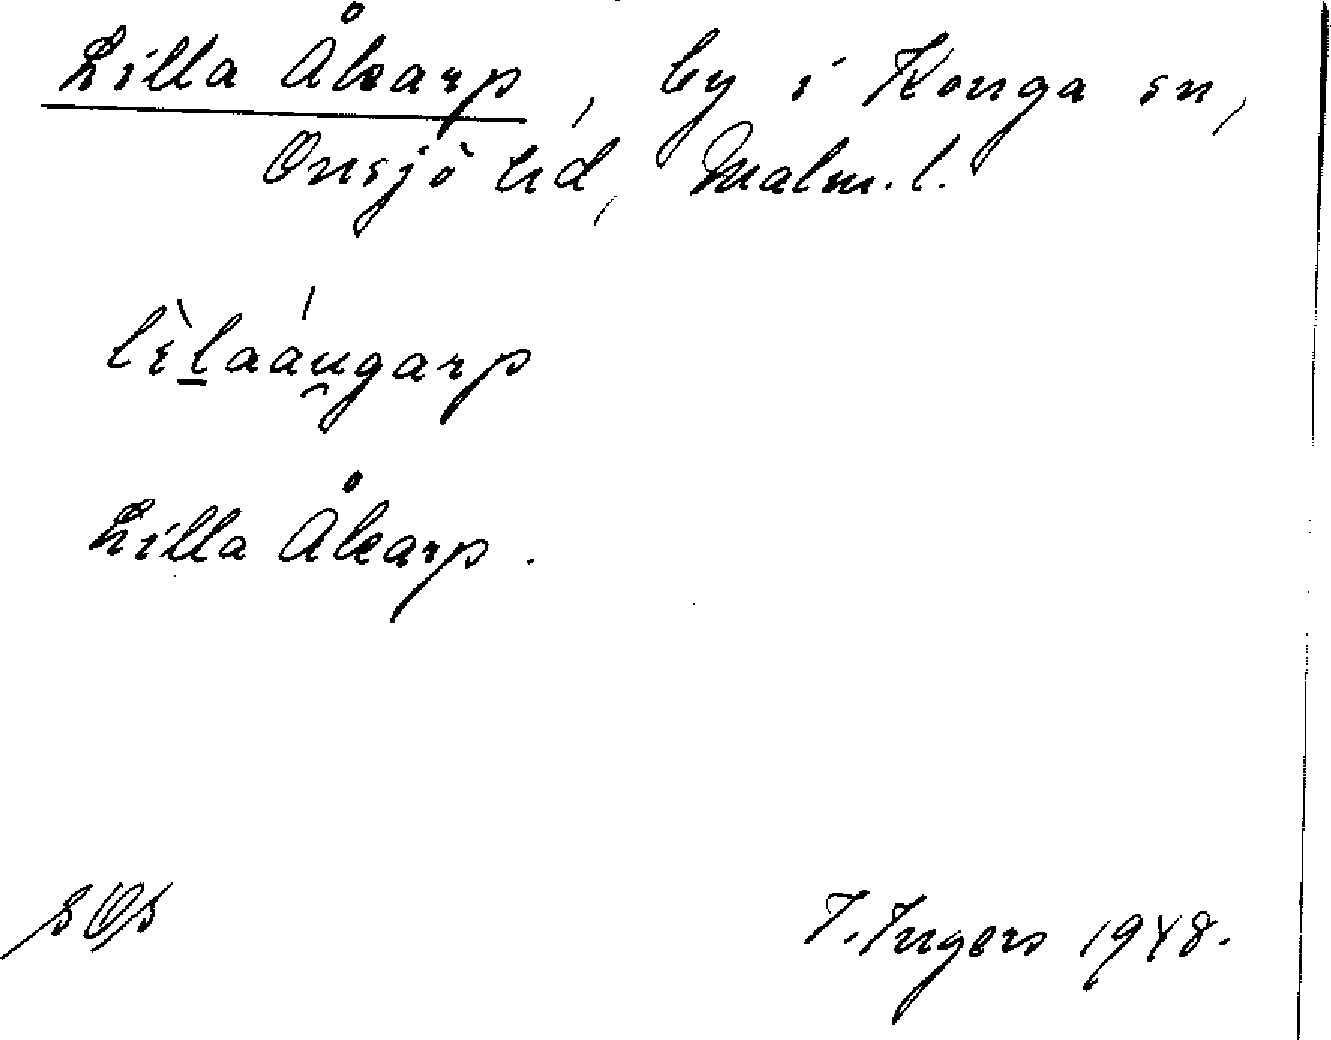 Lilla Åkarp, by i Konga sn,
Onsjö hd, Malm. l.
lìlaáu̯garp
Lilla Åkarp.
SOS
I. Ingers 1948.